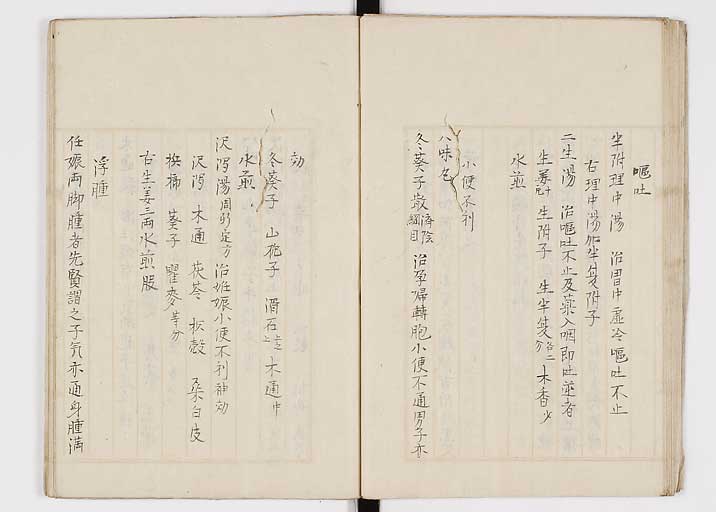 嘔吐
半附理中湯 治胃中虚冷嘔吐不止
右理中湯加半夏附子
二生湯 治嘔吐不止及薬入咽即吐逆者
生姜 生附子 生半夏各二分 木香少
水煎
小便不利
八味丸
冬葵子散 済陰綱目 治孕婦轉胞小便不通男子亦
効
冬葵子 山梔子 滑石 木通中
水煎
沢瀉湯 治妊娠小便不利神効
沢瀉 木通 茯苓 枳殻 桑白皮
檳榔 葵子 瞿麥等分
右生姜三両水煎服
浮腫
任娠両脚腫者先賢謂之子気亦通身腫満